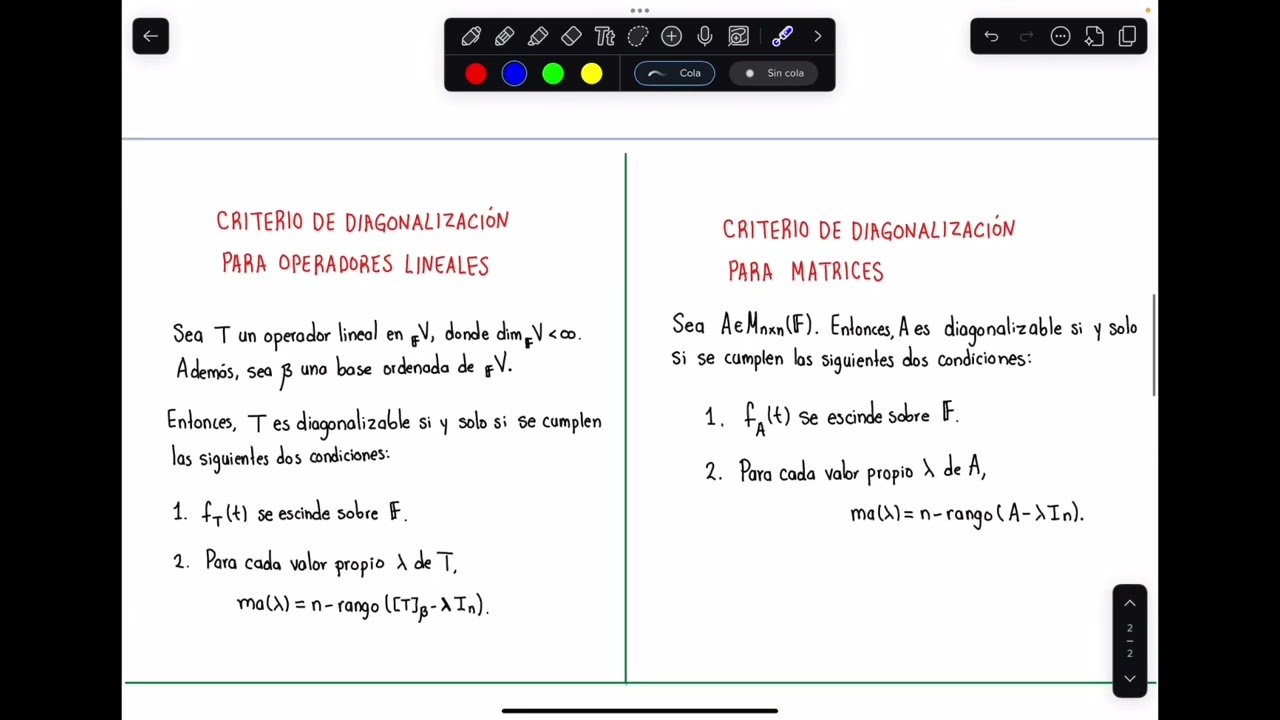 Cola
Sin cola
CRITERIO DE DIAGONALIZACIÓN
PARA OPERADORES LINEALES
Sea T un operador lineal en 𝔽V, donde dim𝔽V < ∞.
Además, sea β una base ordenada de 𝔽V.
Entonces, T es diagonalizable si y solo si se cumplen
las siguientes dos condiciones:
1. f_T(t) se escinde sobre 𝔽.
2. Para cada valor propio λ de T,
ma(λ) = n - rango([T]_β - λI_n).
CRITERIO DE DIAGONALIZACIÓN
PARA MATRICES
Sea A∈M_{n×n}(𝔽). Entonces, A es diagonalizable si y solo
si se cumplen las siguientes dos condiciones:
1. f_A(t) se escinde sobre 𝔽.
2. Para cada valor propio λ de A,
ma(λ) = n - rango(A - λI_n).
2
2